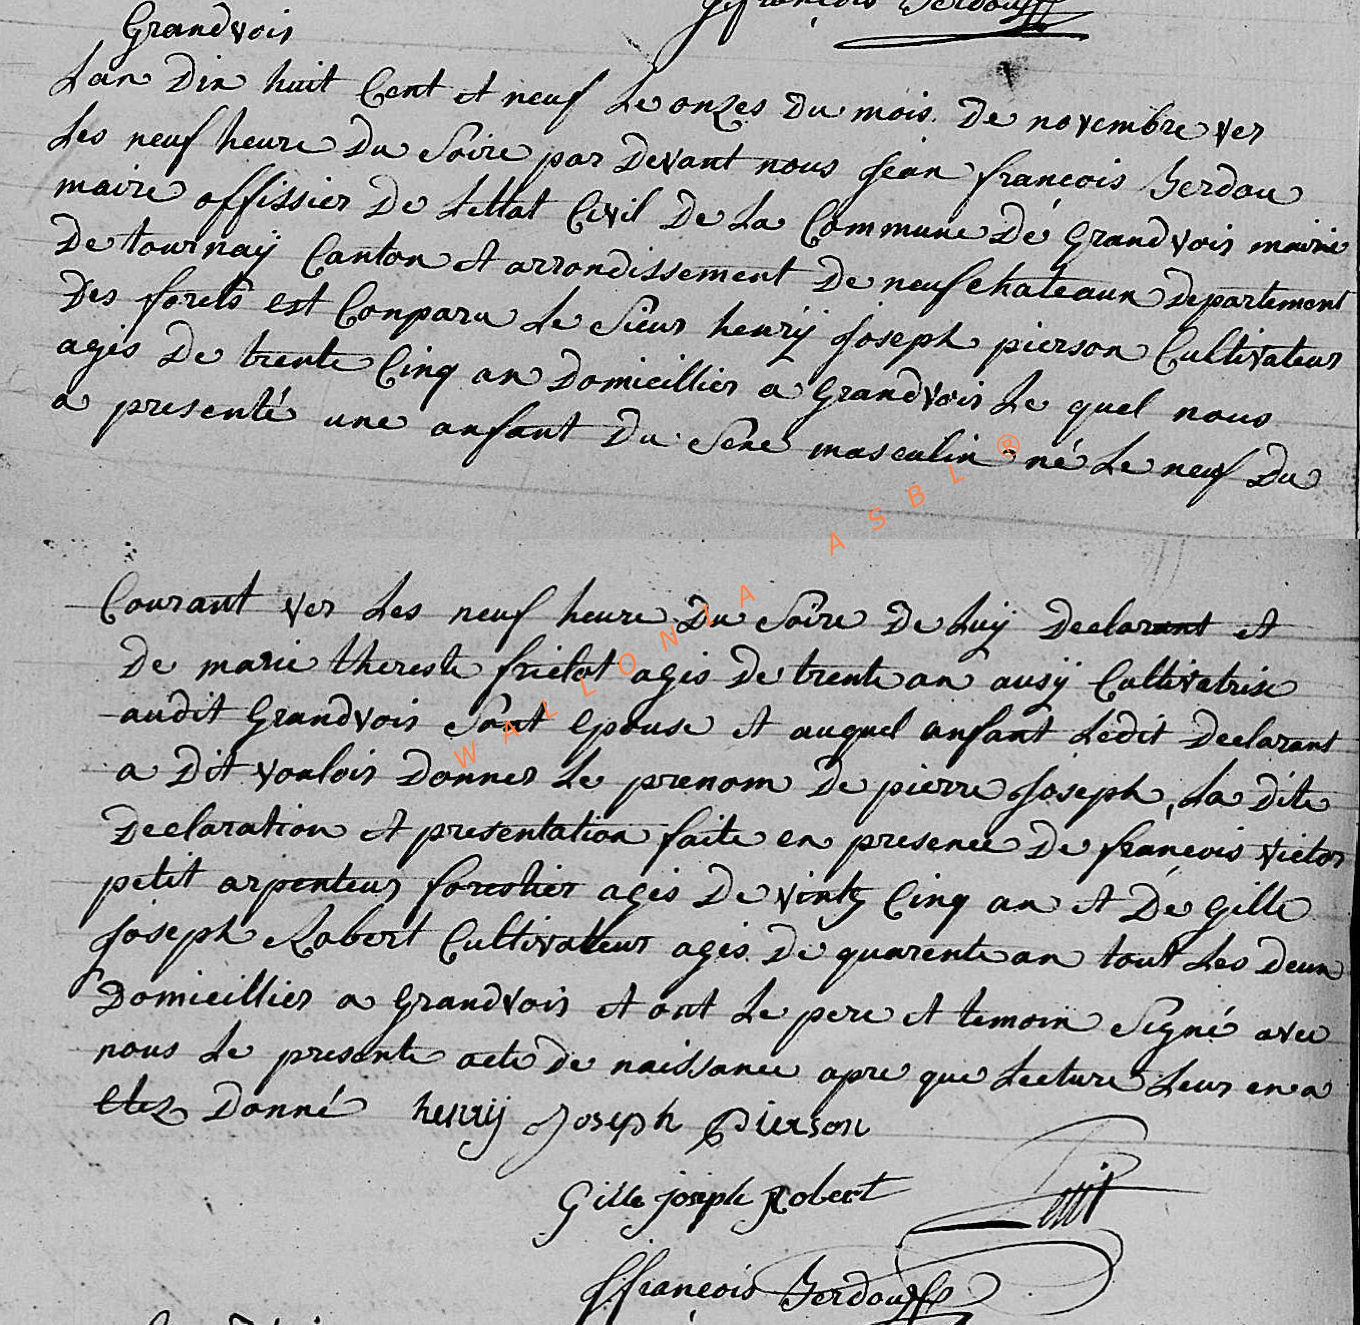 Grandvois
Lan Dix huit Cent et neuf Le onzes Du mois De novembre ver
Les neuf heure Du Soire par Devant nous jean françois
maire offissier De Lettat Civil De La Commune De Grandvois mairie
De tournaÿ Canton et arrondissement De neufchateaux Departement
Des forets est Conparu Le Sieur henrÿ Joseph pierson Cultivateur
agés De trente Cinq an Domicillier a Grandvois Le quel nous
a presenté une anfant Du Sexe masculin né Le neuf Du
WALLONIA ASBL ®
Courant ver Les neuf heure Du Soire De Luÿ Declarant et
De marie therese agés De trente an ausÿ Cultivatrise
audit Grandvois Epouse et auquel anfant Ledit Declarant
a Dit vouloir Donner Le prenom De pierre Joseph, La Dite
Declaration et presentation faite en presence De françois victor
petit arpenteur forestier agés De vintg Cinq an et De Gille
Joseph Robert Cultivateur agés De quarente an tout Les Deux
Domicillier a Grandvois et ont Le pere et temoin Signé avec
nous Le presente acte De naissance apre que Lecture Leur en a
etez Donné henrÿ Joseph Pierson
Gille joseph Robert Petit